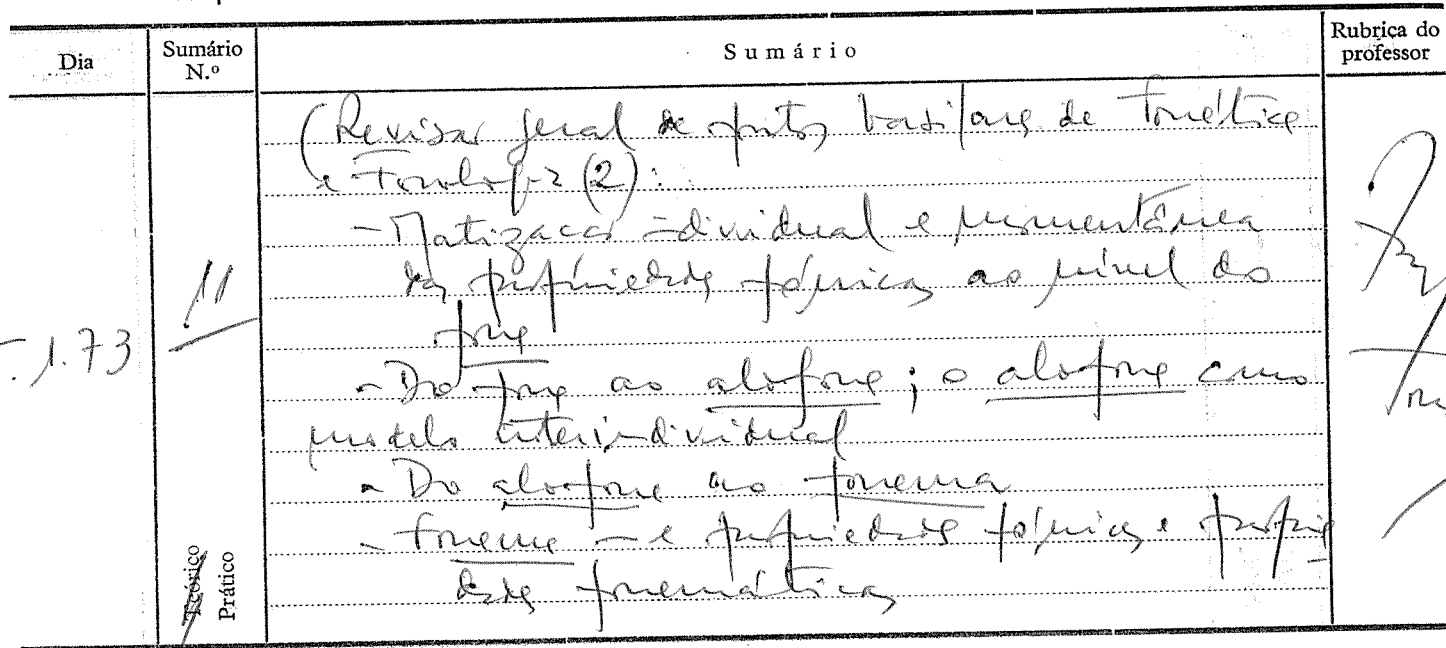 Dia
Sumário N.º
Sumário
Rubrica do professor
.1.73
11
Teórico
Prático
(Revisão geral de pontos basilares de Fonética
e Fonologia (2):
- Matização individual e momentânea
das propriedades fónicas ao nível do
fone
- Do fone ao alofone; o alofone como
modelo interindividual
- Do alofone ao fonema
- Fonema - e propriedades fónicas e proprie-
dades fonemáticas